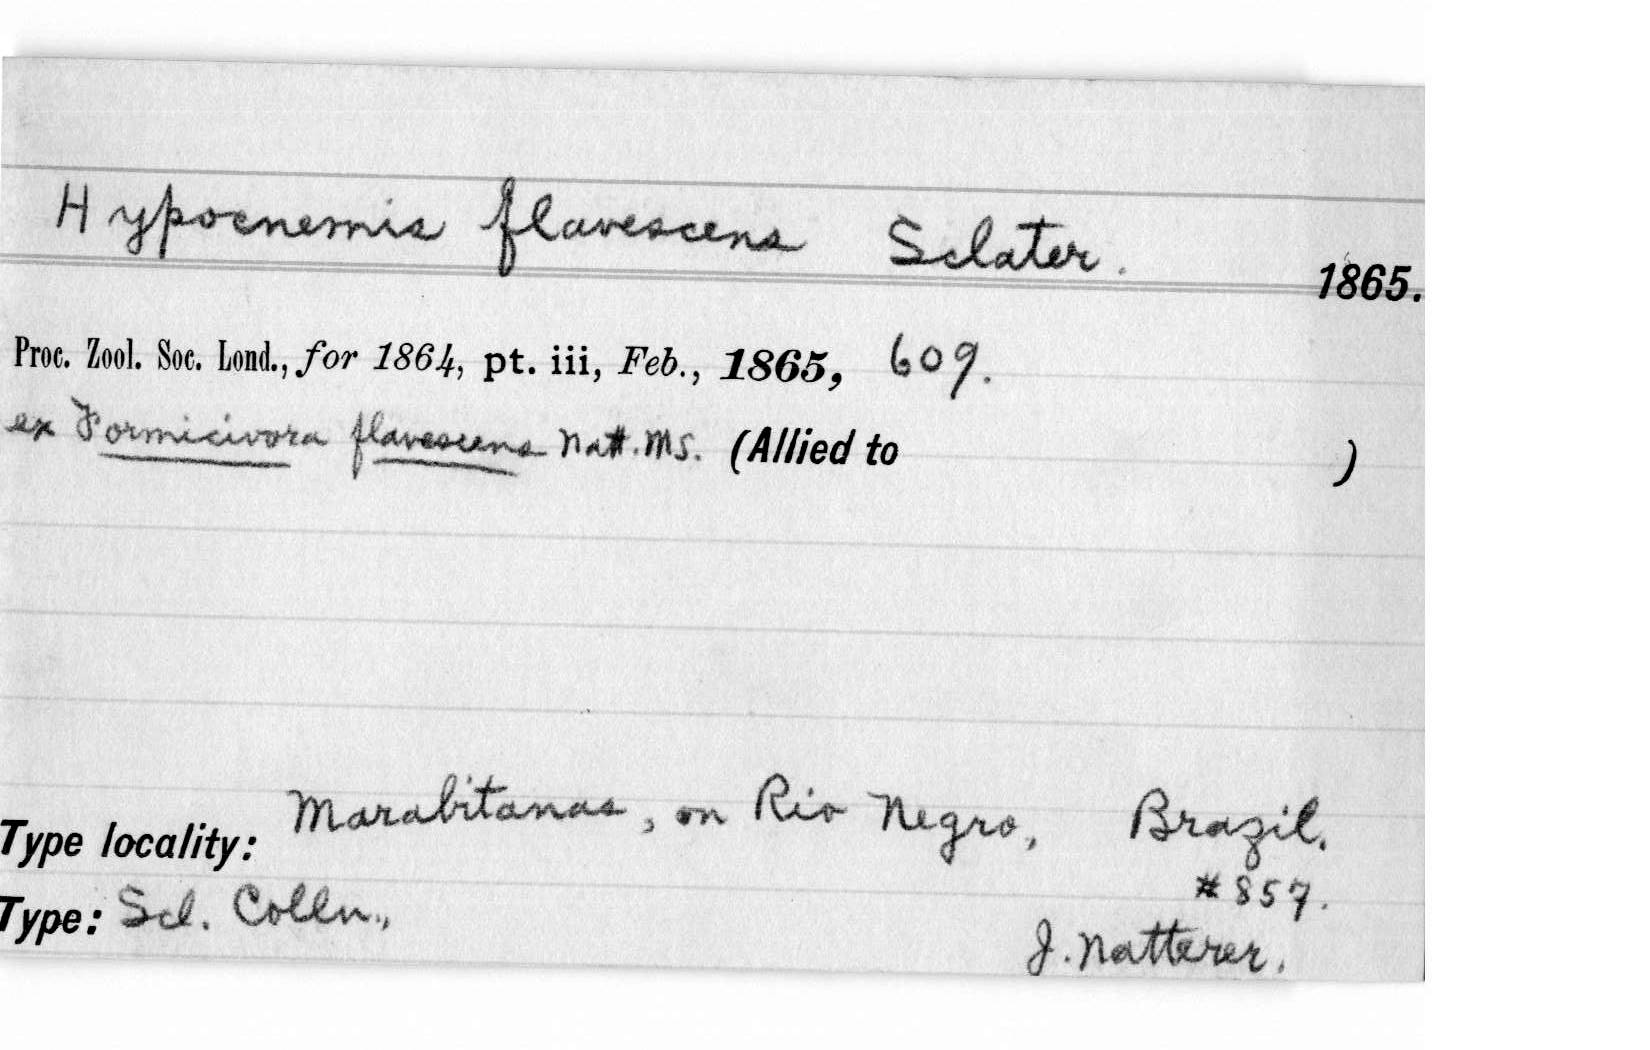 Hypocnemis flavescens Sclater.
1865.
Proc. Zool. Soc. Lond., for 1864, pt. iii, Feb., 1865, 609.
ex Formicivora flavescens Natt. MS. (Allied to )
Type locality: Marabitanas, on Rio Negro, Brazil.
#857.
Type: Scl. Colln.,
J. Natterer.